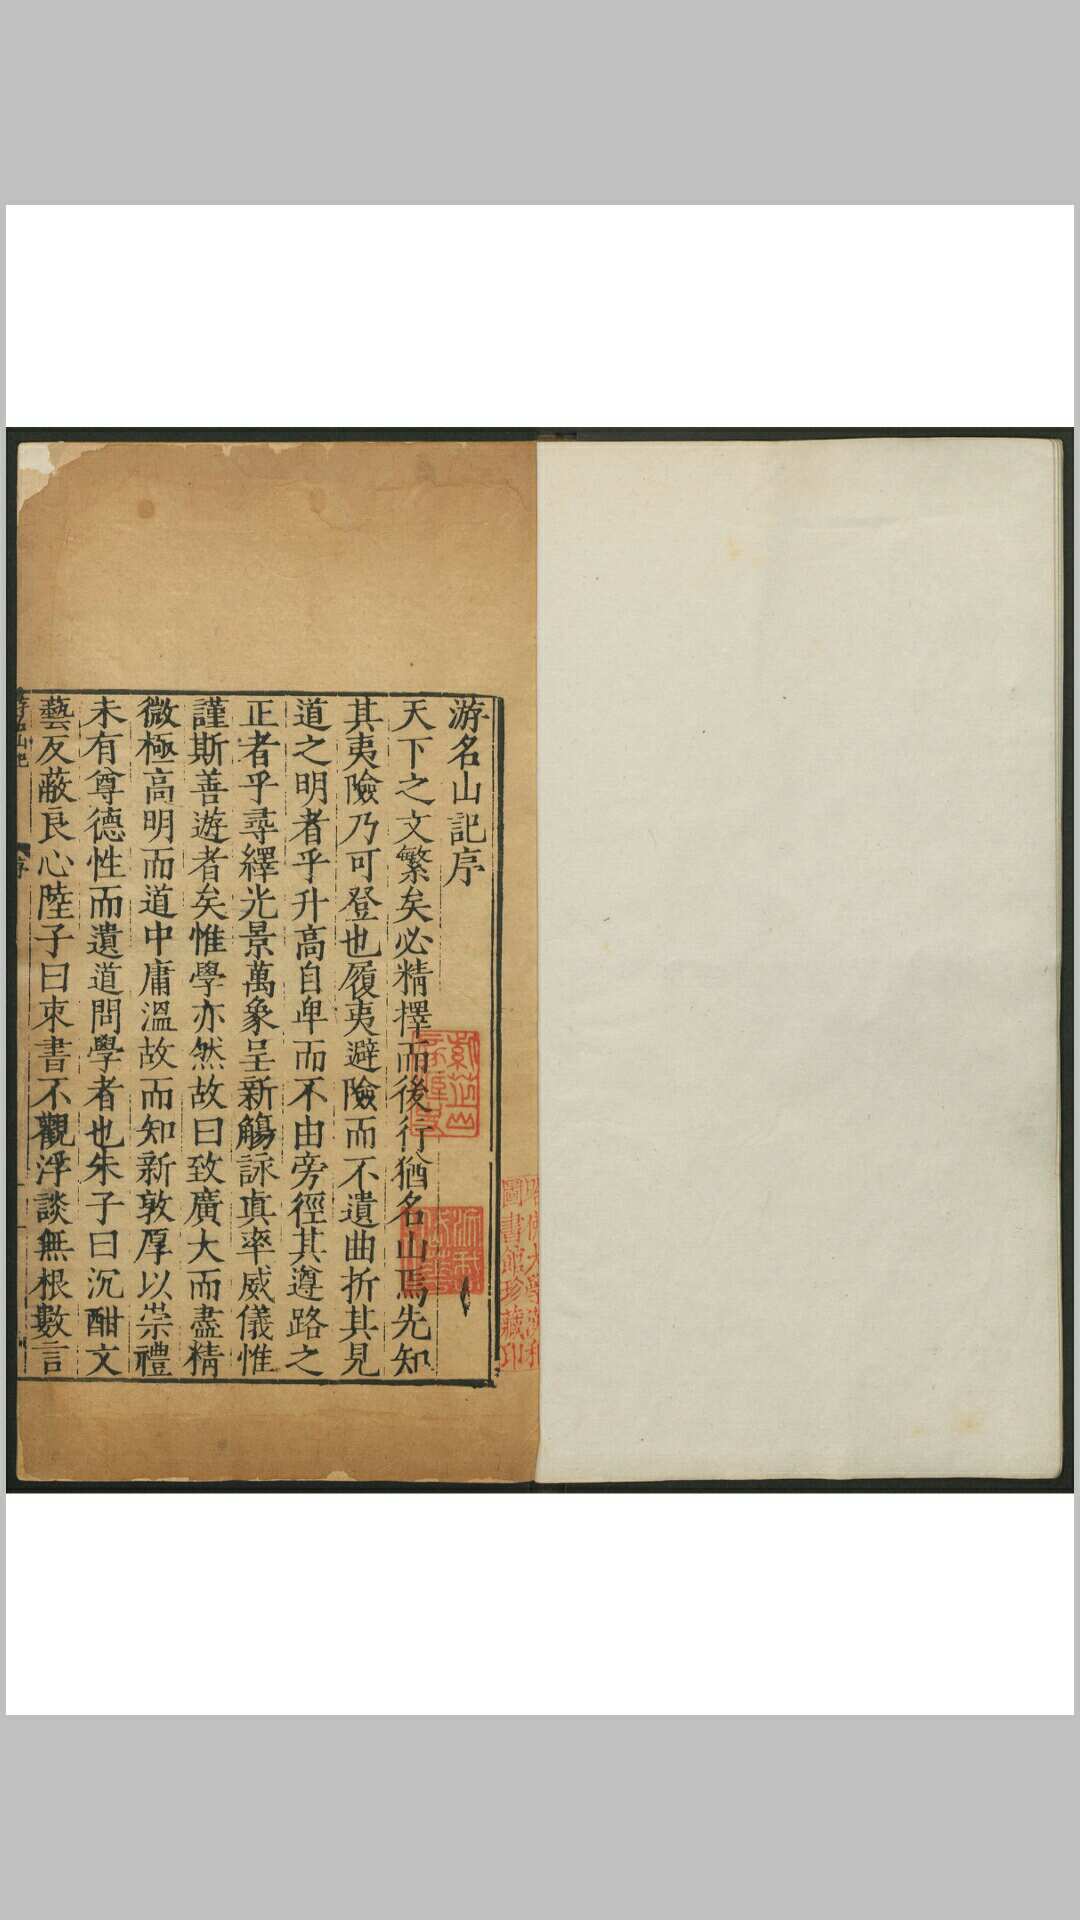 游名山記序
天下之文繁矣必精擇而後行猶名山焉先知
其夷險乃可登也履夷避險而不遺曲折其見
道之明者乎升高自卑而不由旁徑其遵路之
正者乎尋繹光景萬象呈新觴詠真率威儀惟
謹斯善遊者矣惟學亦然故曰致廣大而盡精
微極高明而道中庸溫故而知新敦厚以崇禮
未有尊德性而遺道問學者也朱子曰沉酣文
藝反蔽良心陸子曰束書不觀浮談無根數言
游名山記
序
圖書館珍藏印